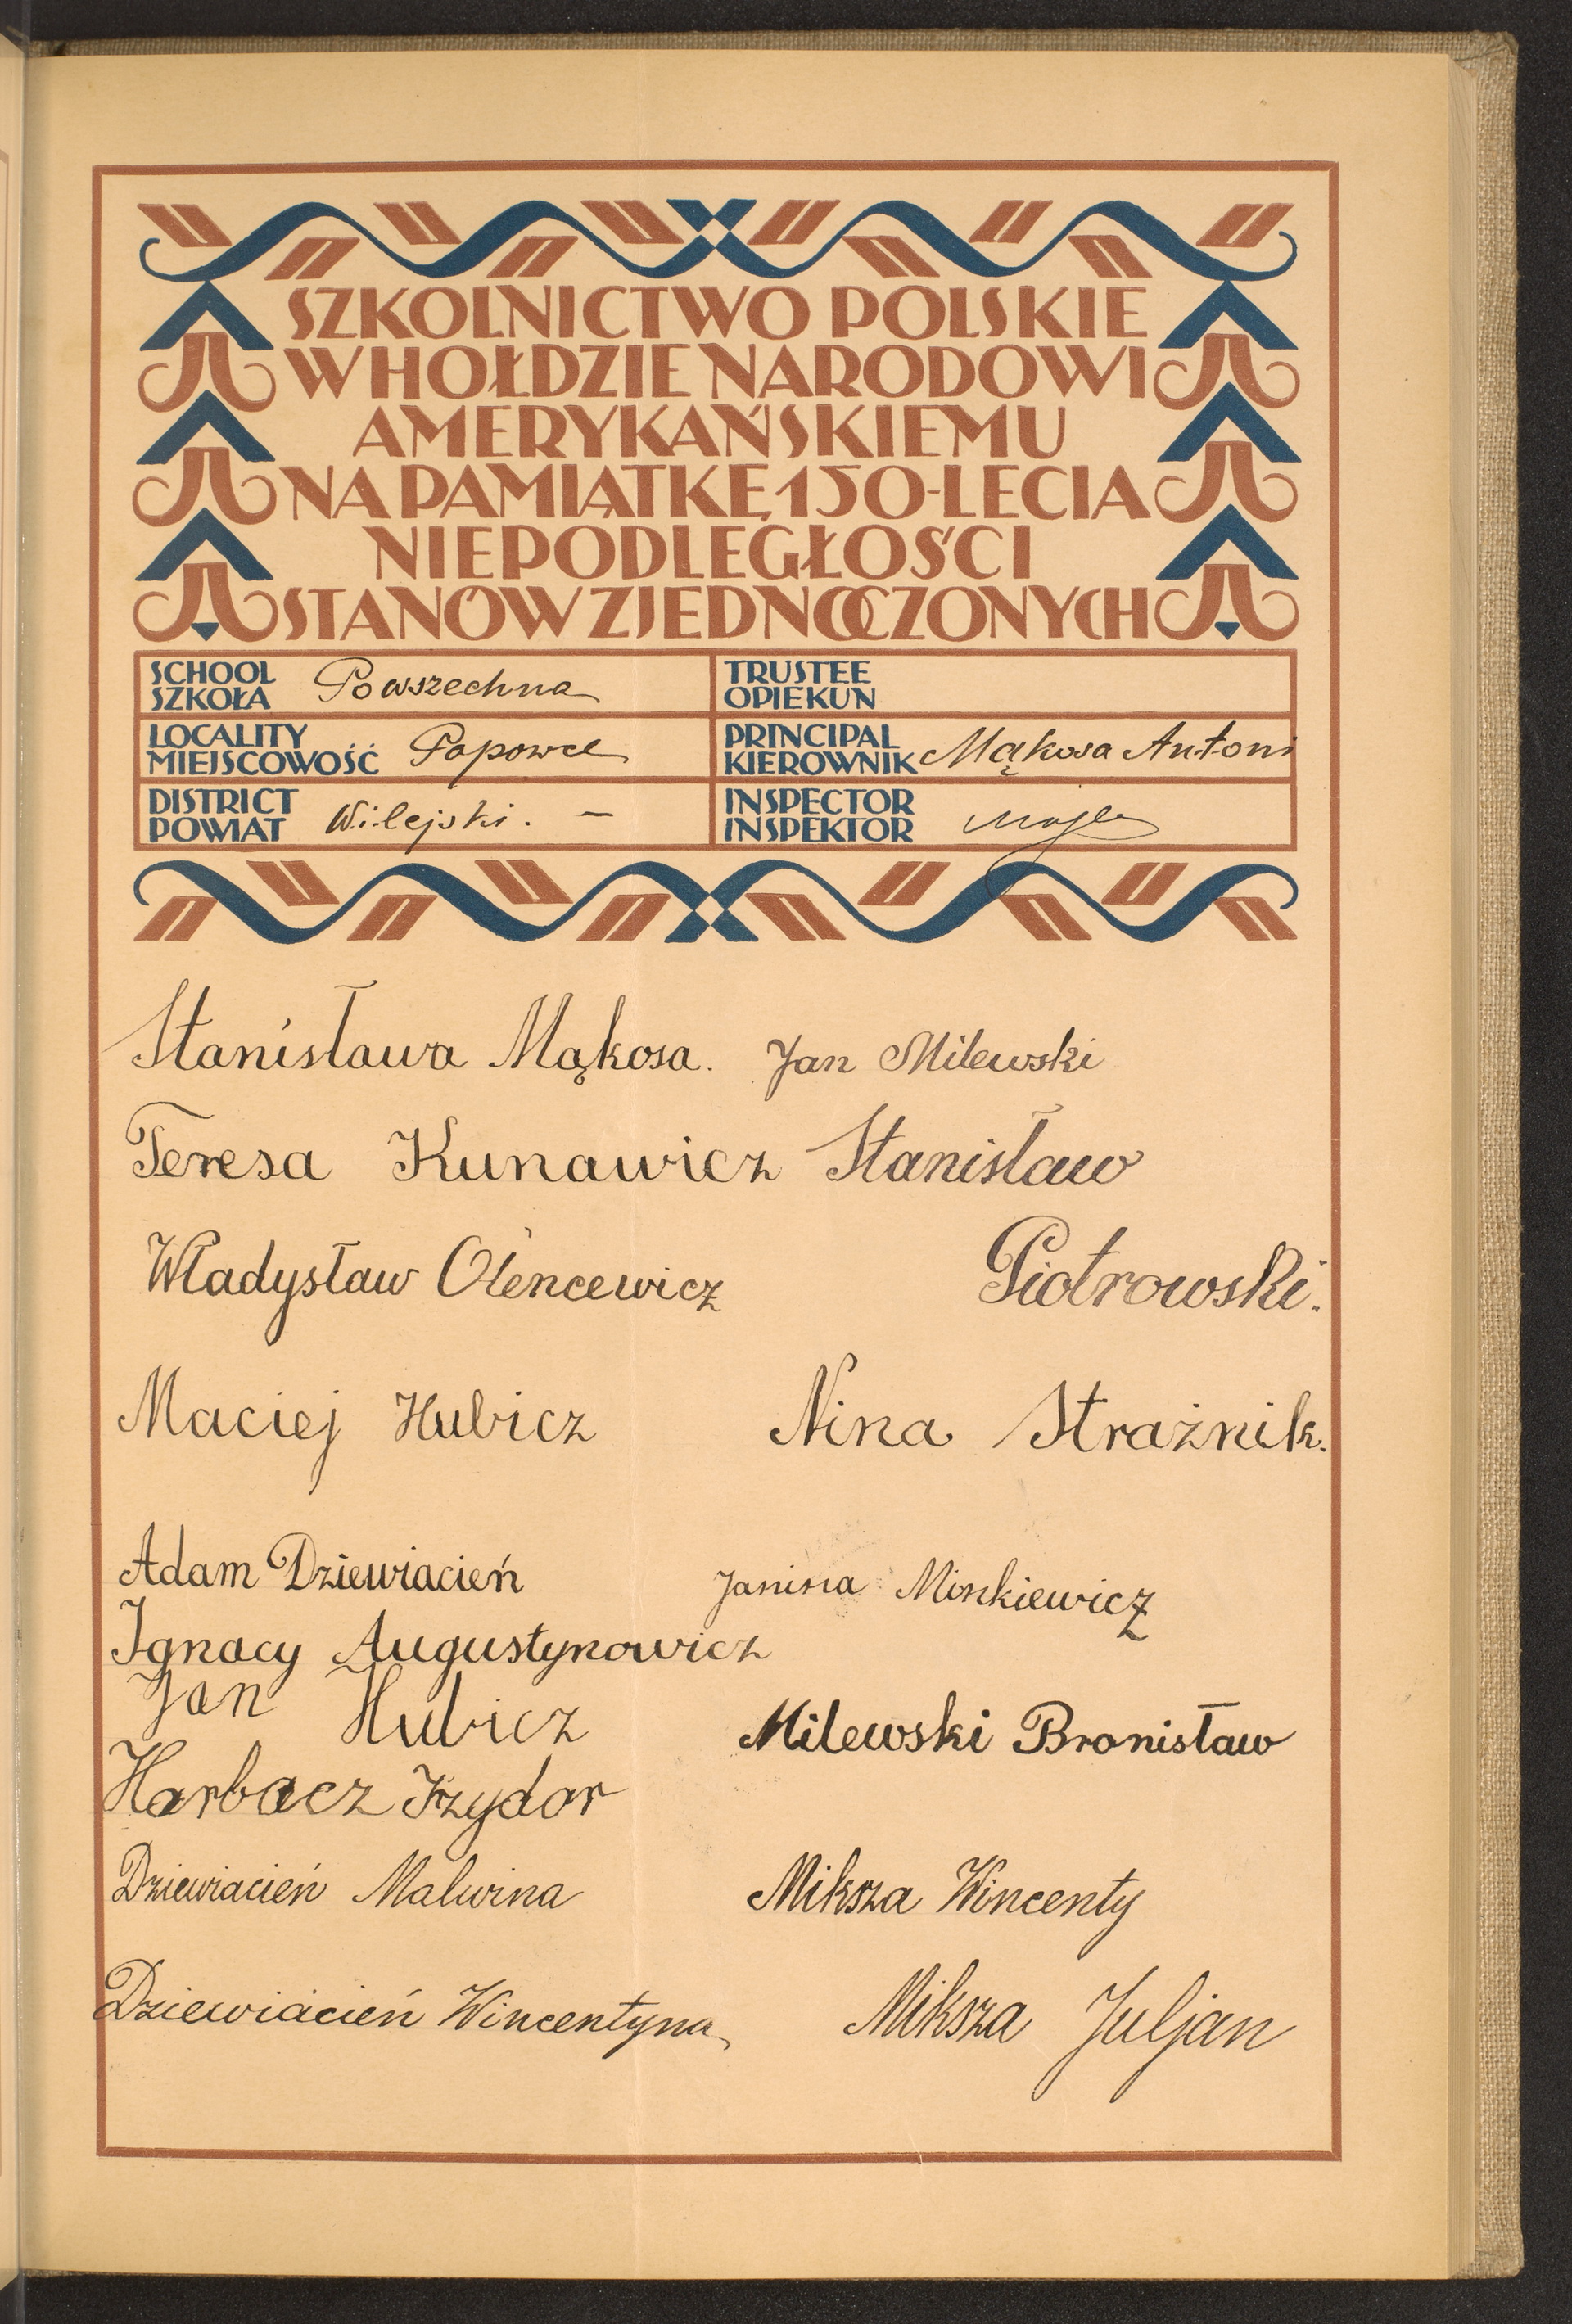 SZKOLNICTWO POLSKIE
W HOŁDZIE NARODOWI
AMERYKAŃSKIEMU
NA PAMIĄTKĘ 150-LECIA
NIEPODLEGŁOŚCI
STANÓW ZJEDNOCZONYCH
SCHOOL
SZKOŁA Powszechna
TRUSTEE
OPIEKUN
LOCALITY
MIEJSCOWOŚĆ Popowce
PRINCIPAL
KIEROWNIK Mąkosa Antoni
DISTRICT
POWIAT Wilejski. –
INSPECTOR
INSPEKTOR
Stanisława Mąkosa. Jan Milewski
Teresa Kunawicz Stanisław
Władysław Olencewicz Piotrowski.
Maciej Hubicz Nina Strażnik.
Adam Dziewiacień Janina Minkiewicz
Ignacy Augustynowicz
Jan Hubicz Milewski Bronisław
Harbacz Izydor
Dziewiacień Malwina Miksza Wincenty
Dziewiacień Wincentyna Miksza Juljan